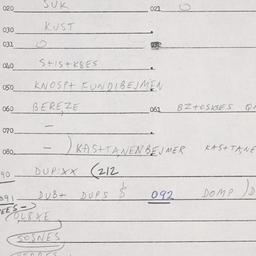 020 SUK 021 O
030 KUST
031 O
040 S+IS+KBES
050 KNOSP+ FUNDIBEJMEN
060 BEREZE 061 BZ+OSKIES
070 —
080 — ) KAS+TANENBEJMER KAS+TANE
90 DUP:XX (212
091 DUB+ DUPS 092 DOMP
OLBXE
SOSNES